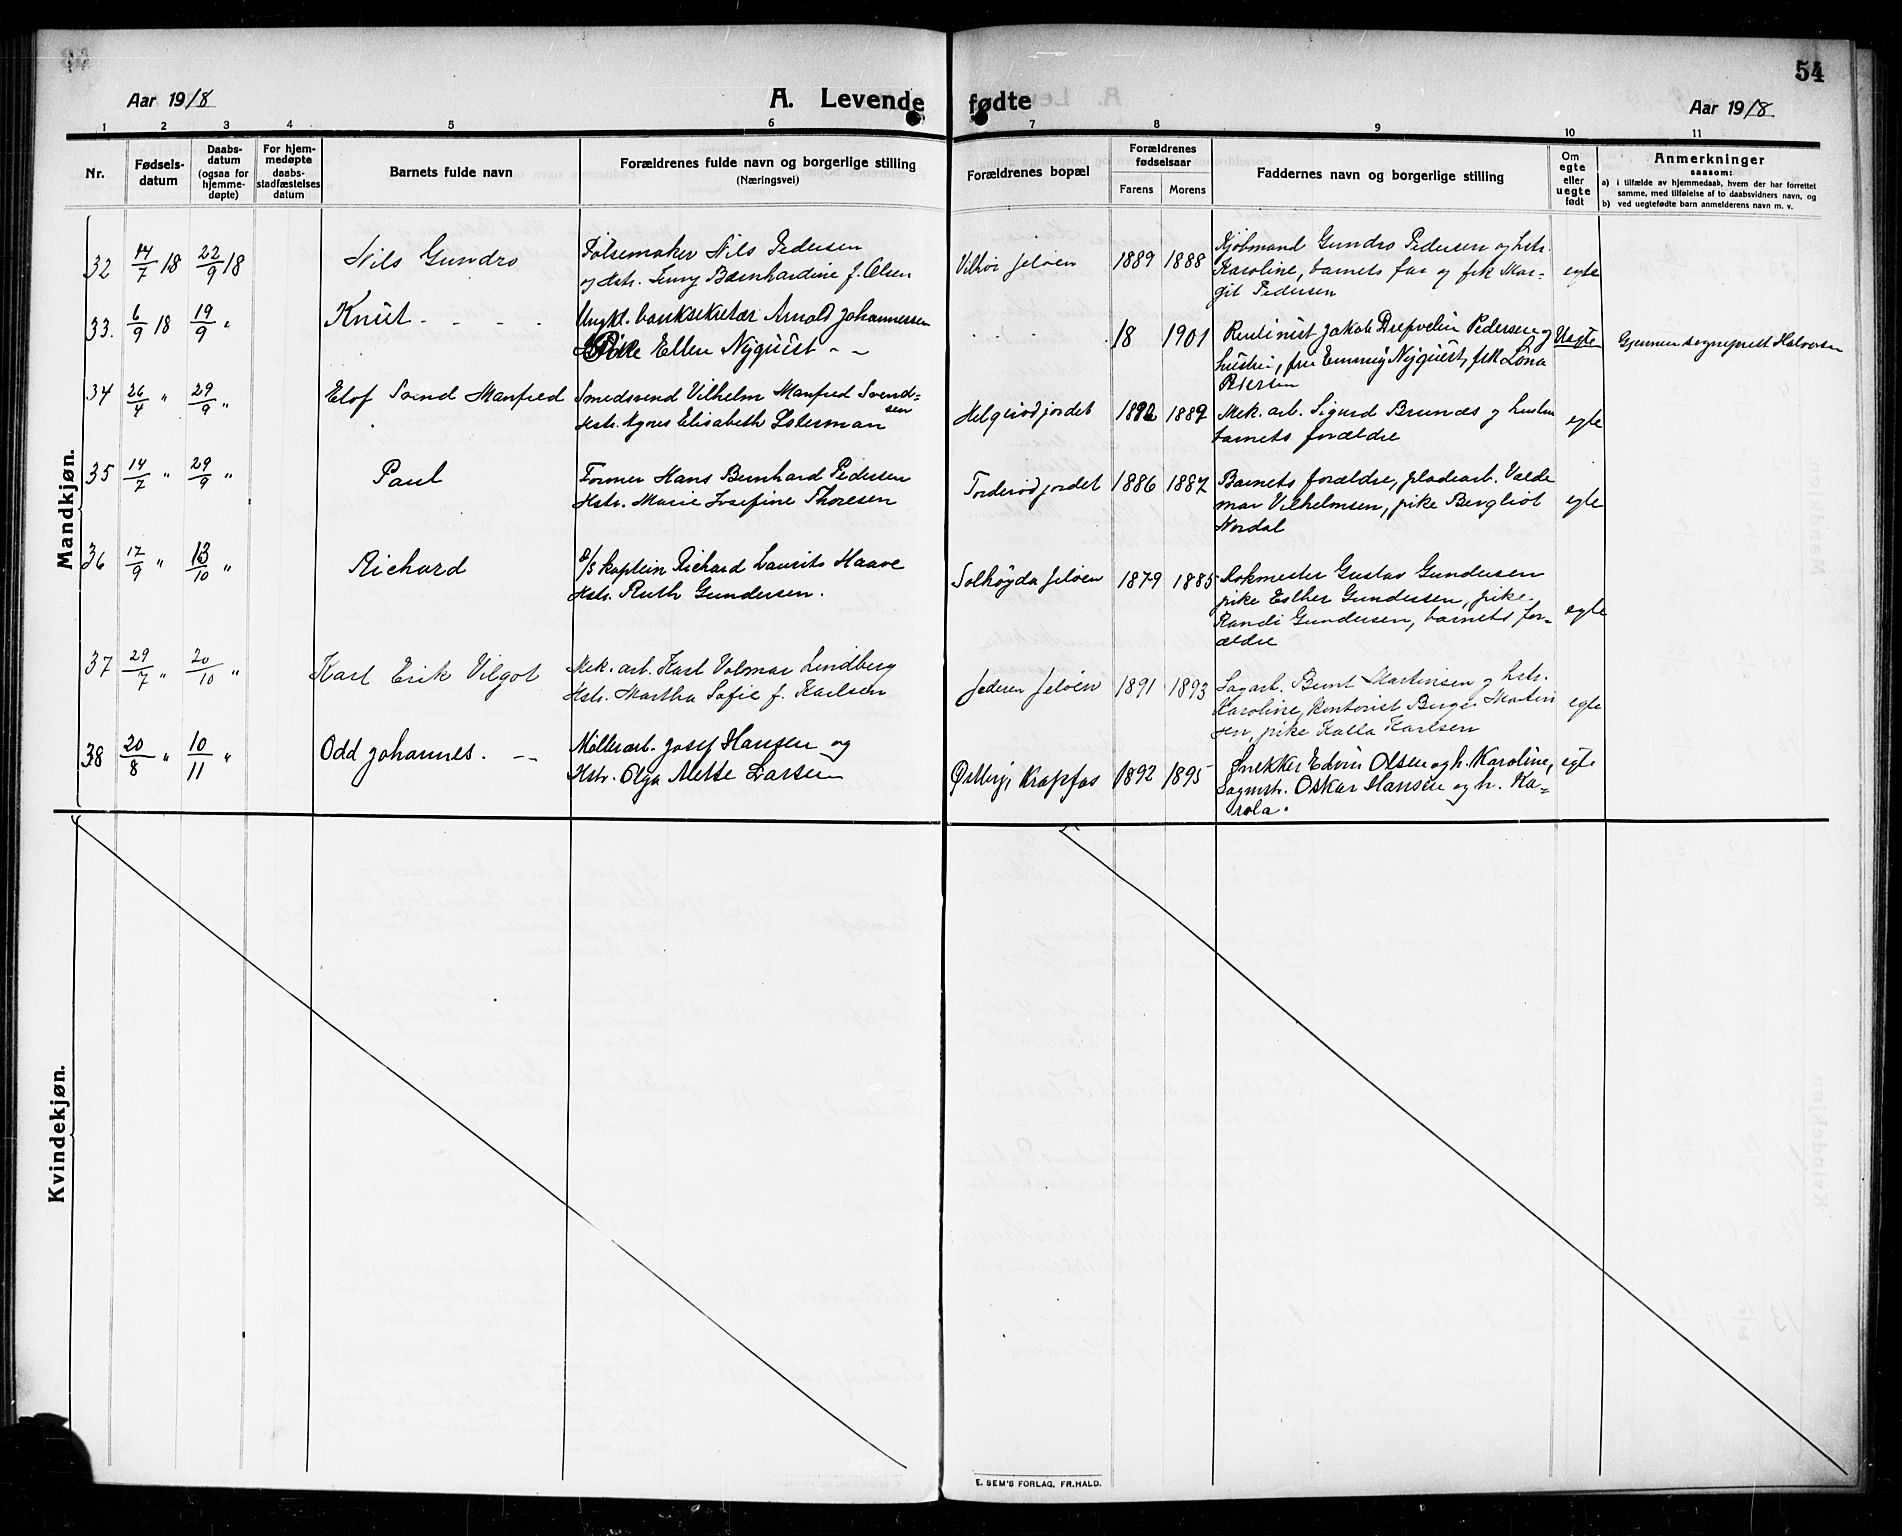 54
Aar 1918
A. Levende fødte
Aar 1918
1 2 3 4 5 6 7 8 9 10 11
Nr.
Fødsels-
datum
Daabs-
datum
(ogsaa for
hjemme-
døpte)
For hjem-
medøpte
daabs-
stadfæstelses
datum
Barnets fulde navn
Forældrenes fulde navn og borgerlige stilling
(Næringsvei)
Forældrenes bopæl
Forældrenes
fødselsaar
Farens Morens
Faddernes navn og borgerlige stilling
Om
egte
eller
uegte
født
Anmerkninger
saasom:
a) i tilfælde av hjemmedaab, hvem der har forrettet
samme, med tilføielse af to daabsvidners navn, og
b) ved uegtefødte barn anmelderens navn m. v.
Mandkjøn.
32 14/7 18 22/9 18 Nils Gundro
Pølsemaker Nils Pedersen
og hstr. Jenny Bernhardine f. Olsen
Vilhøi Jeløen 1889 1888
Kjøbmand Gundro Pedersen og hstr.
Karoline, barnets far og frk Mar-
git Pedersen
egte
33. 6/9 18 19/9 " Knut - - -
Ungkl. banksekretær Arnold Johannessen
Pike Ellen Nyquist - -
18 1901
Rentenist Jakob Pedersen og
hustru, fru Emmy Nyquist, frk Lona
Petersen
Uegte
Gjennem sogneprest Halvorsen
34 26/4 " 29/9 " Elof Svend Manfred
Smedsvend Vilhelm Manfred Svend-
sen
Hstr. Agnes Elisabeth Losterman
Helgerødjordet 1892 1889
Mek. arb. Sigurd Brunæs og hustru
barnets forældre
egte
35 14/7 " 29/9 " Paul
Former Hans Bernhard Pedersen
Hstr. Marie Josefine Thoresen
Torderødjordet 1886 1887
Barnets forældre, pladearb. Valde
mar Vilhelmsen, pike Bergliot
Nordal
egte
36 17/9 " 13/10 " Richard
D/S kaptein Richard Laurits Haave
Hstr. Ruth Gundersen.
Solhøgda Jeløen 1879 1885
Lokmester Gustav Gundersen
pike Esther Gundersen, pike
Randi Gundersen, barnets for-
ældre
egte
37 29/7 " 20/10 " Karl Erik Vilgot
Mek. arb. Karl Volmar Lindberg
Hstr. Martha Sofie f. Karlsen
Jederen Jeløen 1891 1893
Sagarb. Bernt Martinsen og hstr.
Karoline, kontorist Birger Martin
sen, pike Kalla Karlsen
egte
38 20/8 " 10/11 " Odd Johannes. - -
Møllearb. Josef Hansen og
Hstr. Olga Mette Larsen
Østberg, Krapfos 1892 1895
Snekker Edvin Olsen og h. Karoline,
Sagmstr. Oskar Hansen og h. Ka-
rola.
egte
Kvindekjøn.
E. SEM'S FORLAG, FR.HALD.